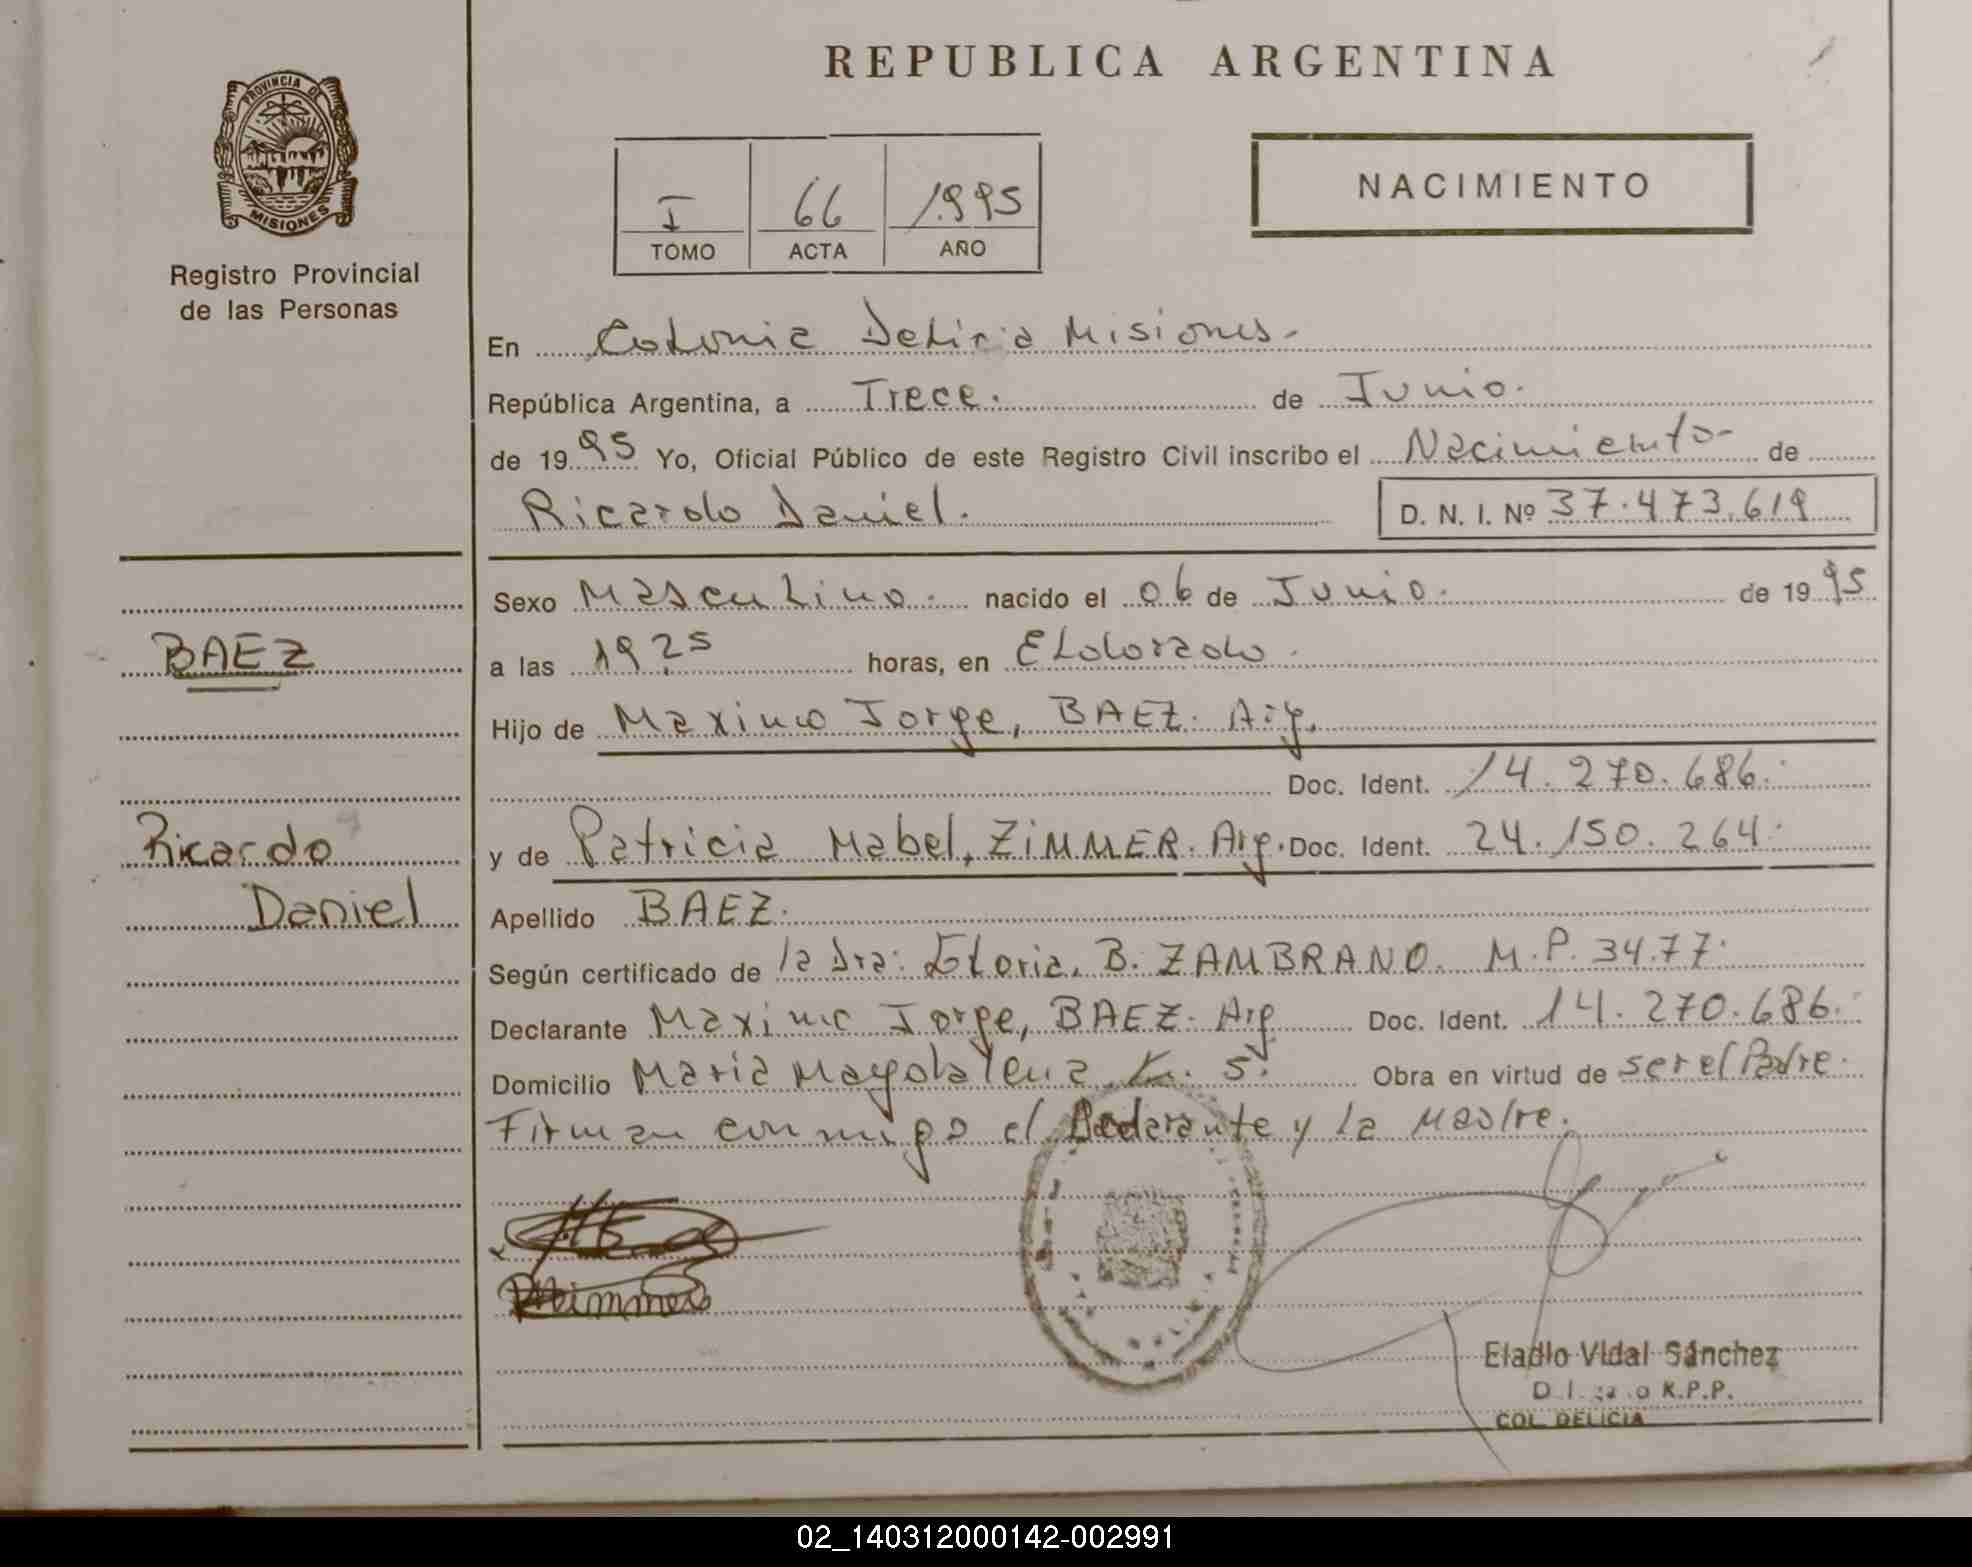 REPUBLICA ARGENTINA
PROVINCIA DE
MISIONES
Registro Provincial
de las Personas
I 66 1995
TOMO ACTA AÑO
NACIMIENTO
En Colonia Delicia Misiones.
República Argentina, a Trece. de Junio.
de 1995 Yo, Oficial Público de este Registro Civil inscribo el Nacimiento de
Ricardo Daniel. D. N. I. Nº 37.473.619
Sexo Masculino. nacido el 06 de Junio. de 1995
BAEZ
a las 1925 horas, en Eldorado.
Hijo de Maximo Jorge, BAEZ. Arg.
Doc. Ident. 14.270.686.
Ricardo
y de Patricia Mabel, ZIMMER. Arg. Doc. Ident. 24.150.264.
Daniel
Apellido BAEZ.
Según certificado de la Dra: Gloria. B. ZAMBRANO. M.P. 3477.
Declarante Maximo Jorge, BAEZ. Arg Doc. Ident. 14.270.686.
Domicilio Maria Magdalena K. 5. Obra en virtud de ser el Padre.
Firman conmigo el Declarante y la Madre.
PZimmer
Eladio Vidal Sánchez
R.P.P.
COL. DELICIA
02_140312000142-002991